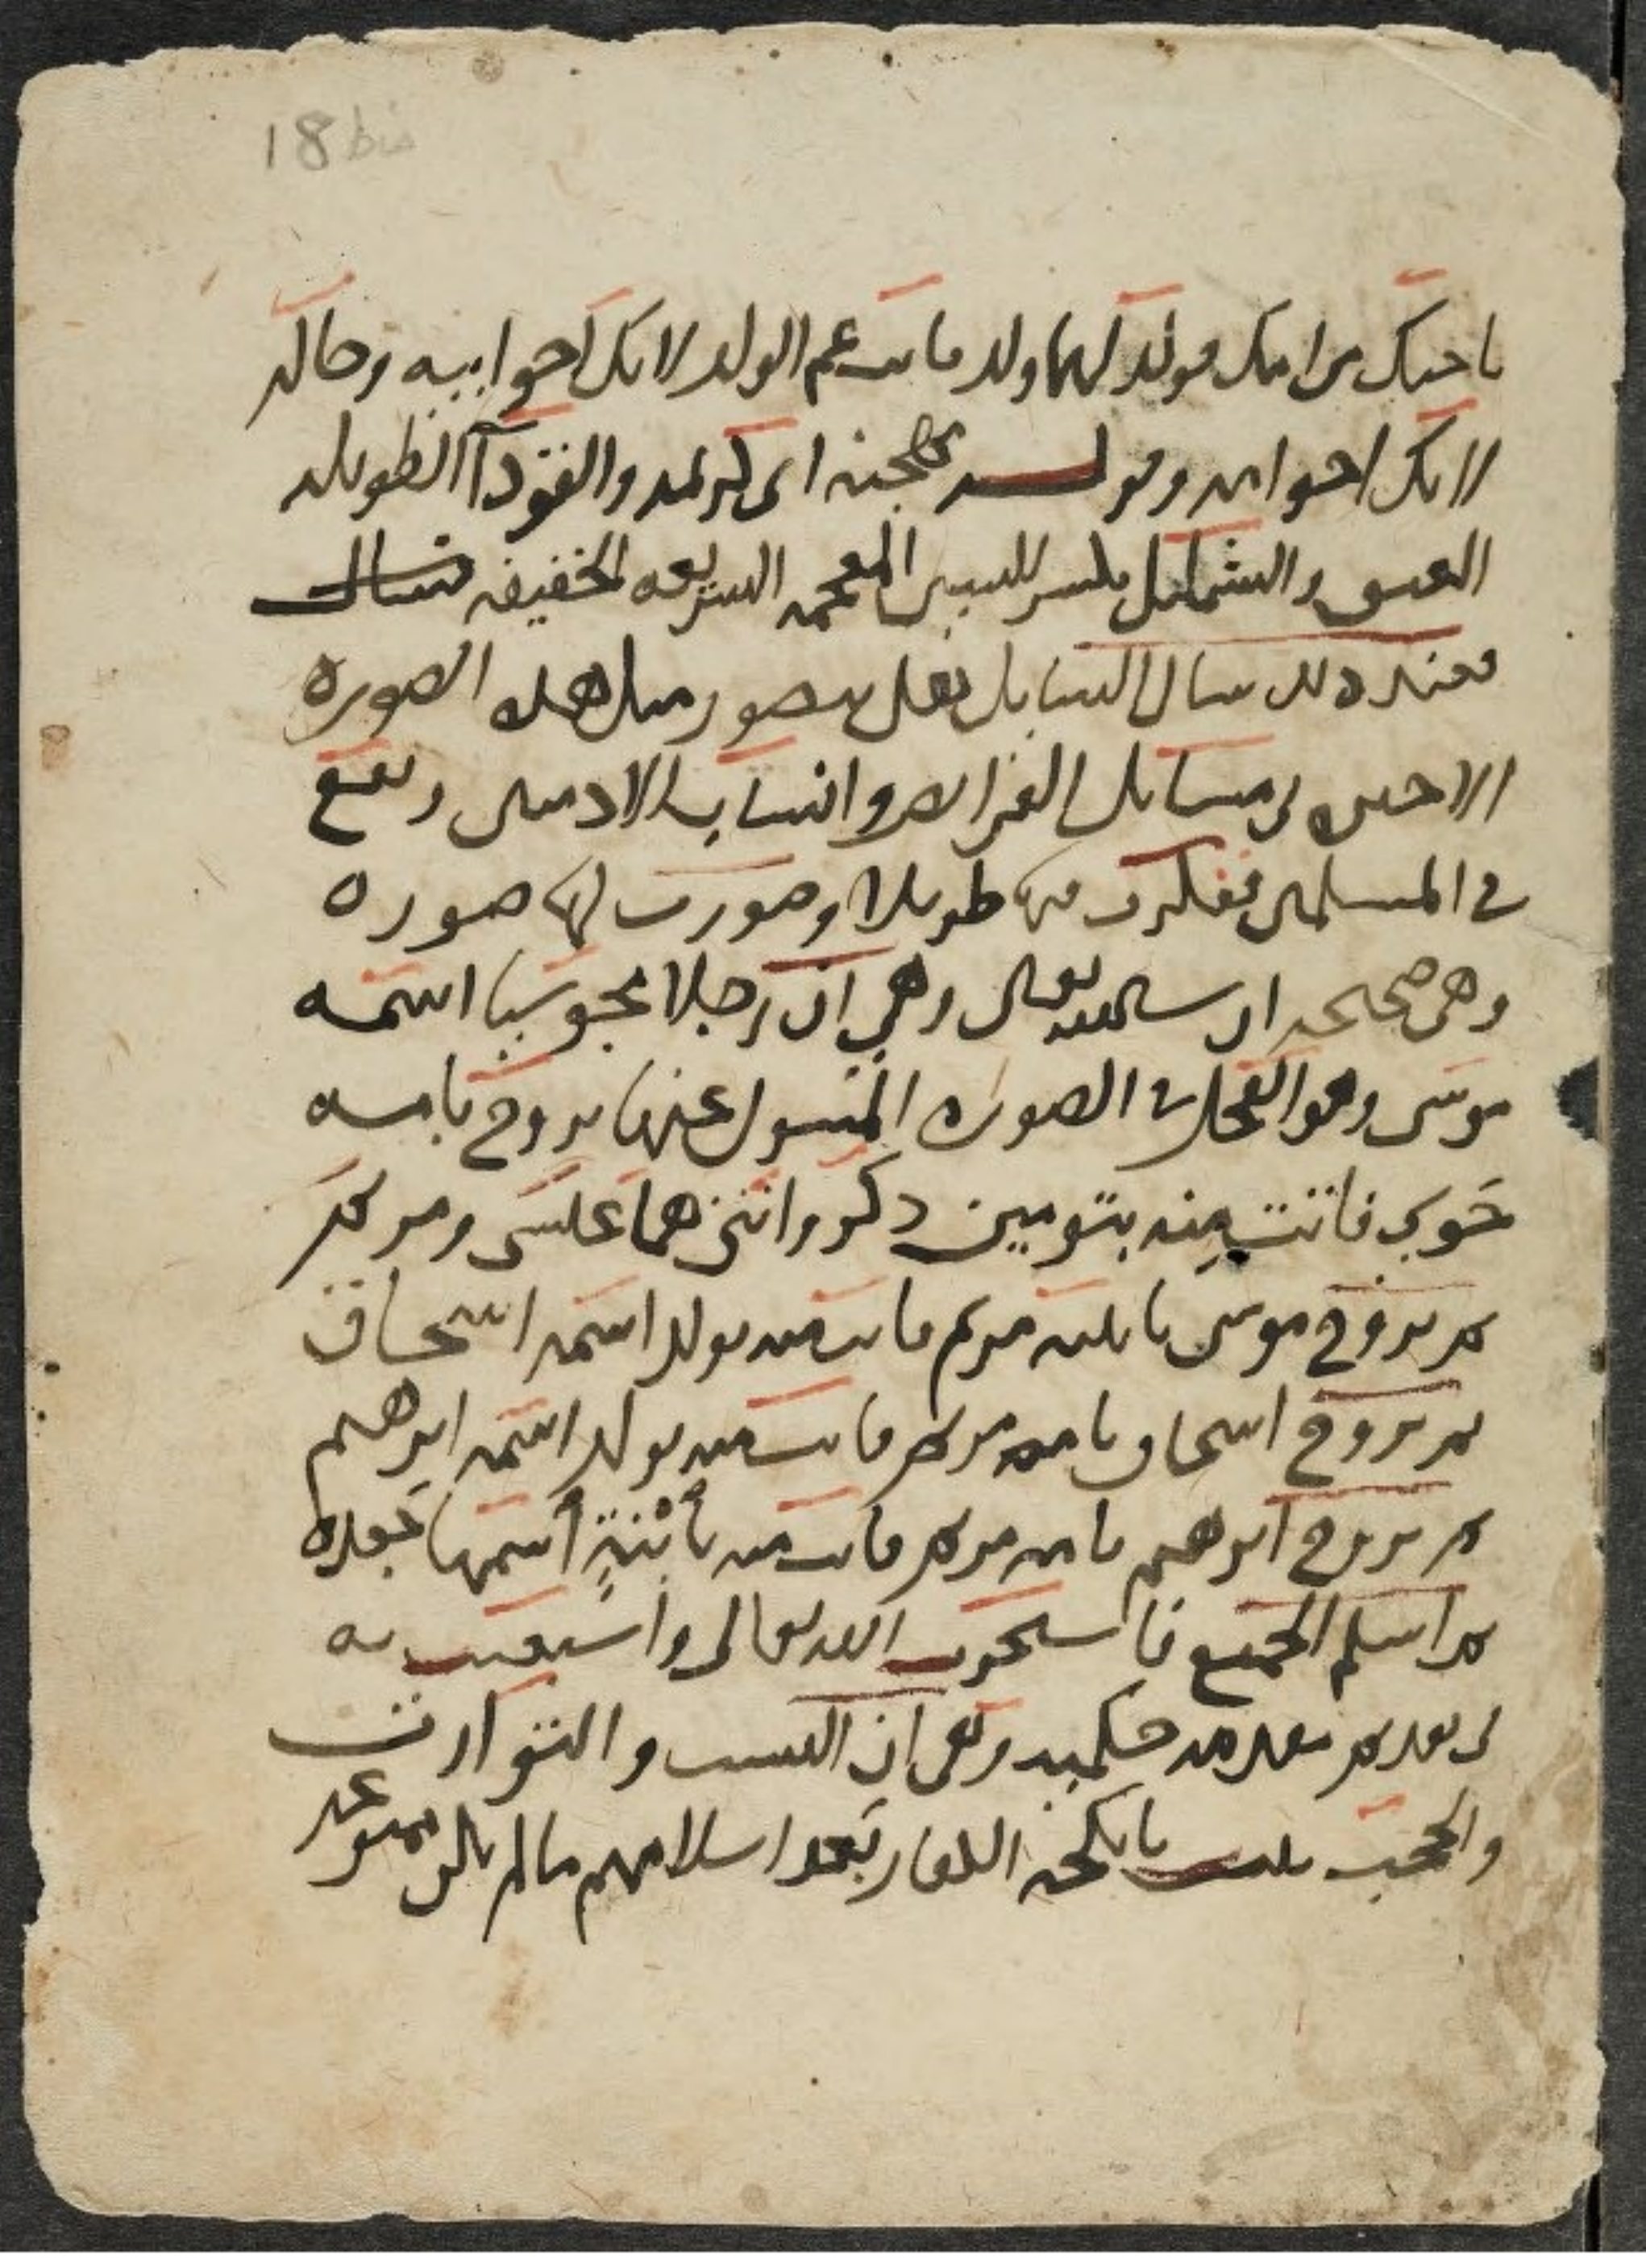 18 bis
باختك من امك فولد لهما ولد فانت عم الولد لانك اخو ابيه وخاله
لانك اخو امه وقوله مهجنة اى كريمه والقودآ الطويله
العنق والشمليل بكسر الشين المعجمه السريعه الخفيفه فسال
فعند ذلك سال السايل فهل يتصور مثل هذه الصوره
الاخيره فى مسايل الفرايض وانساب الادميين ويقع
فى المسلمين ففكرت فيها طويلا وصورت لها صوره
وهى صحيحه ان شا الله تعالى وهي ان رجلا مجوسيا اسمه
موسى وهو الفحل فى الصوره المسول عنها يزوج بامه
حوي فاتت منه بتومين ذكر وانثى هما عيسى ومريم
ثم تزوج موسى بابنته مريم فاتت منه بولد اسمه اسحاق
ثم تزوج اسحاق بامه مريم فاتت منه بولد اسمه ابرهيم
ثم تزوج ابرهيم بامه مريم فاتت منه بابنةٍ اسمها جعده
ثم اسلم الجميع فاستخرت الله تعالى واستعنت به
فى بعد ثم بعد هذه حكمته وهى ان النسب والتوارث
والحجب يثبت بانكحة الكفار بعد اسلامهم ما لم يكن